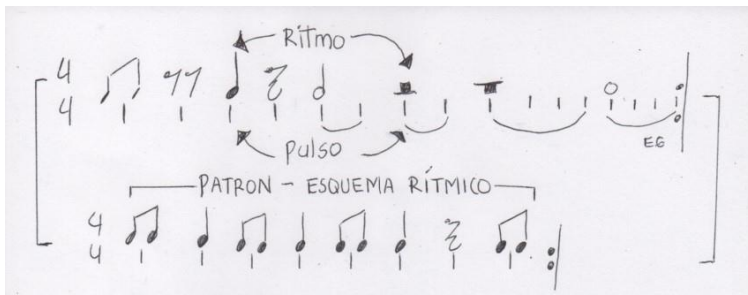 Ritmo
4
4
pulso
EG
PATRON - ESQUEMA RÍTMICO
4
4